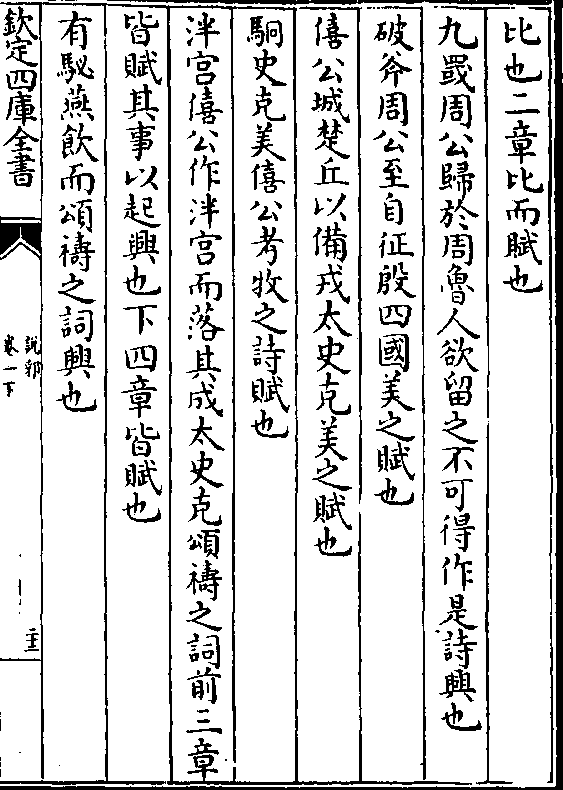 比也二章比而賦也
九罭周公歸於周魯人欲留之不可得作是詩興也
破斧周公至自征殷四國美之賦也
僖公城楚丘以備戎太史克美之賦也
駉史克美僖公考牧之詩賦也
泮宫僖公作泮宫而落其成太史克頌禱之詞前三章
皆賦其事以起興也下四章皆賦也
有駜燕飲而頌禱之詞興也
欽定四庫全書
說郛
卷一下